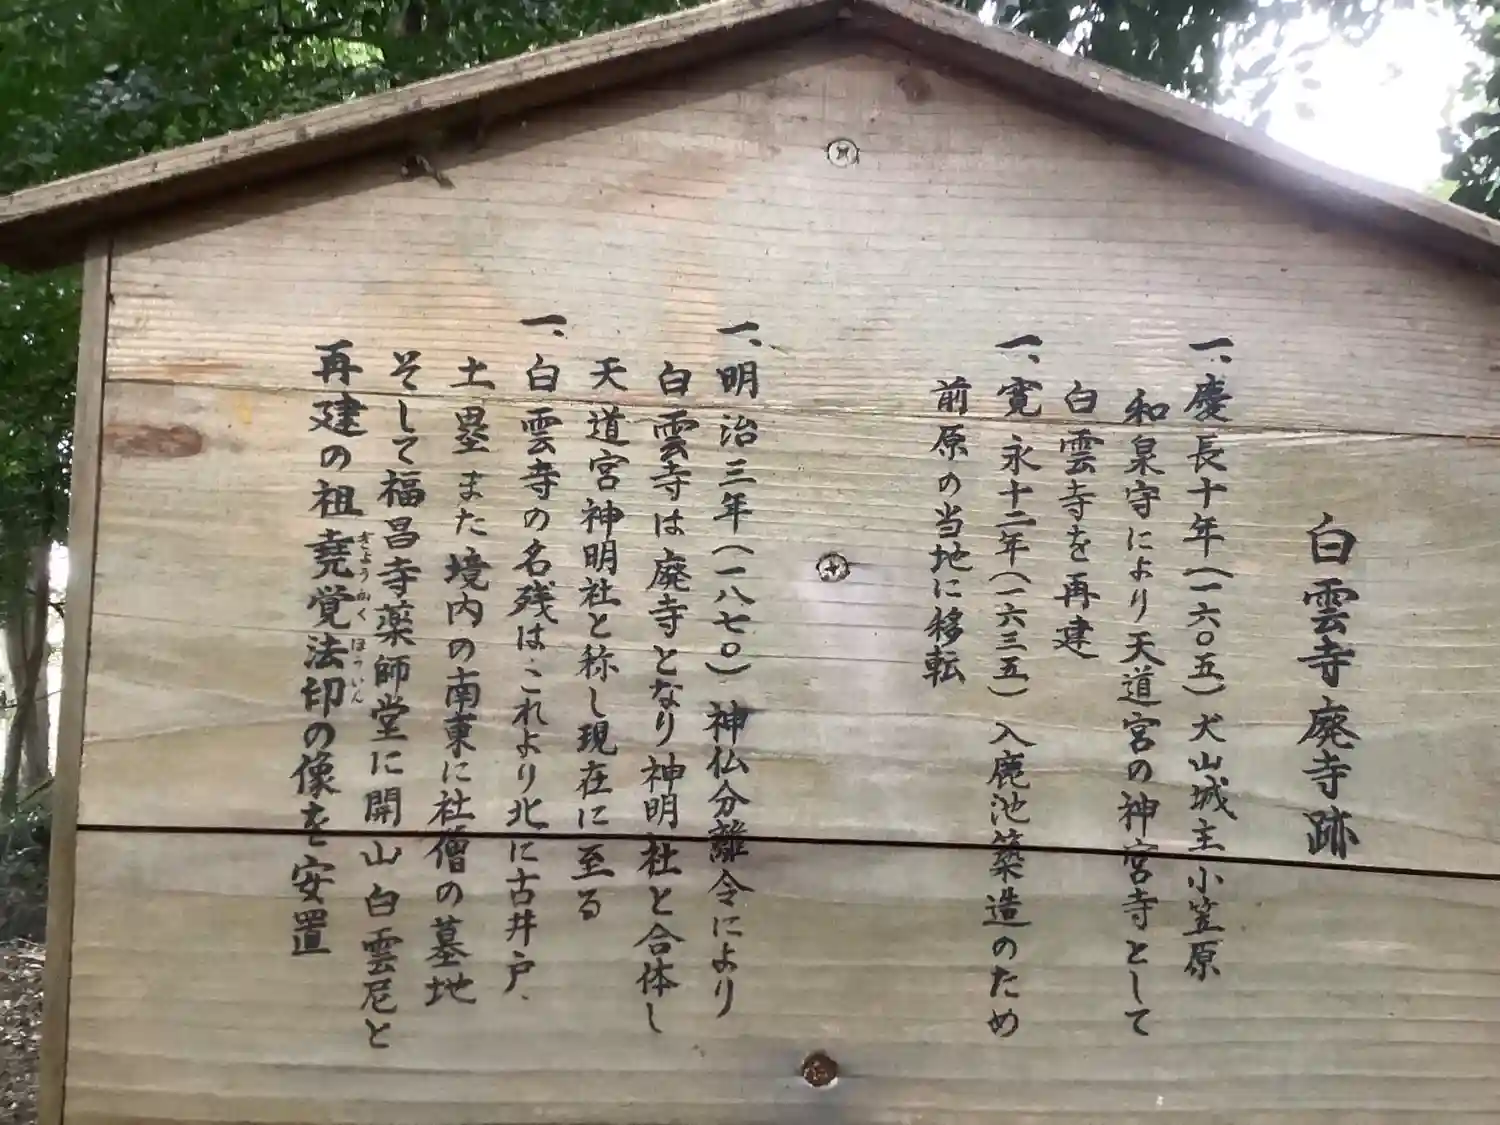 白雲寺廃寺跡
一、慶長十年(一六〇五)犬山城主小笠原
和泉守により天道宮の神宮寺として
白雲寺を再建
一、寛永十二年(一六三五)入鹿池築造のため
前原の当地に移転
一、明治三年(一八七〇)神仏分離令により
白雲寺は廃寺となり神明社と合体し
天道宮神明社と称し現在に至る
一、白雲寺の名残はこれより北に古井戸、
土塁また境内の南東に社僧の墓地
そして福昌寺薬師堂に開山白雲尼と
再建の祖堯覚法印の像を安置
ぎょうかくほういん